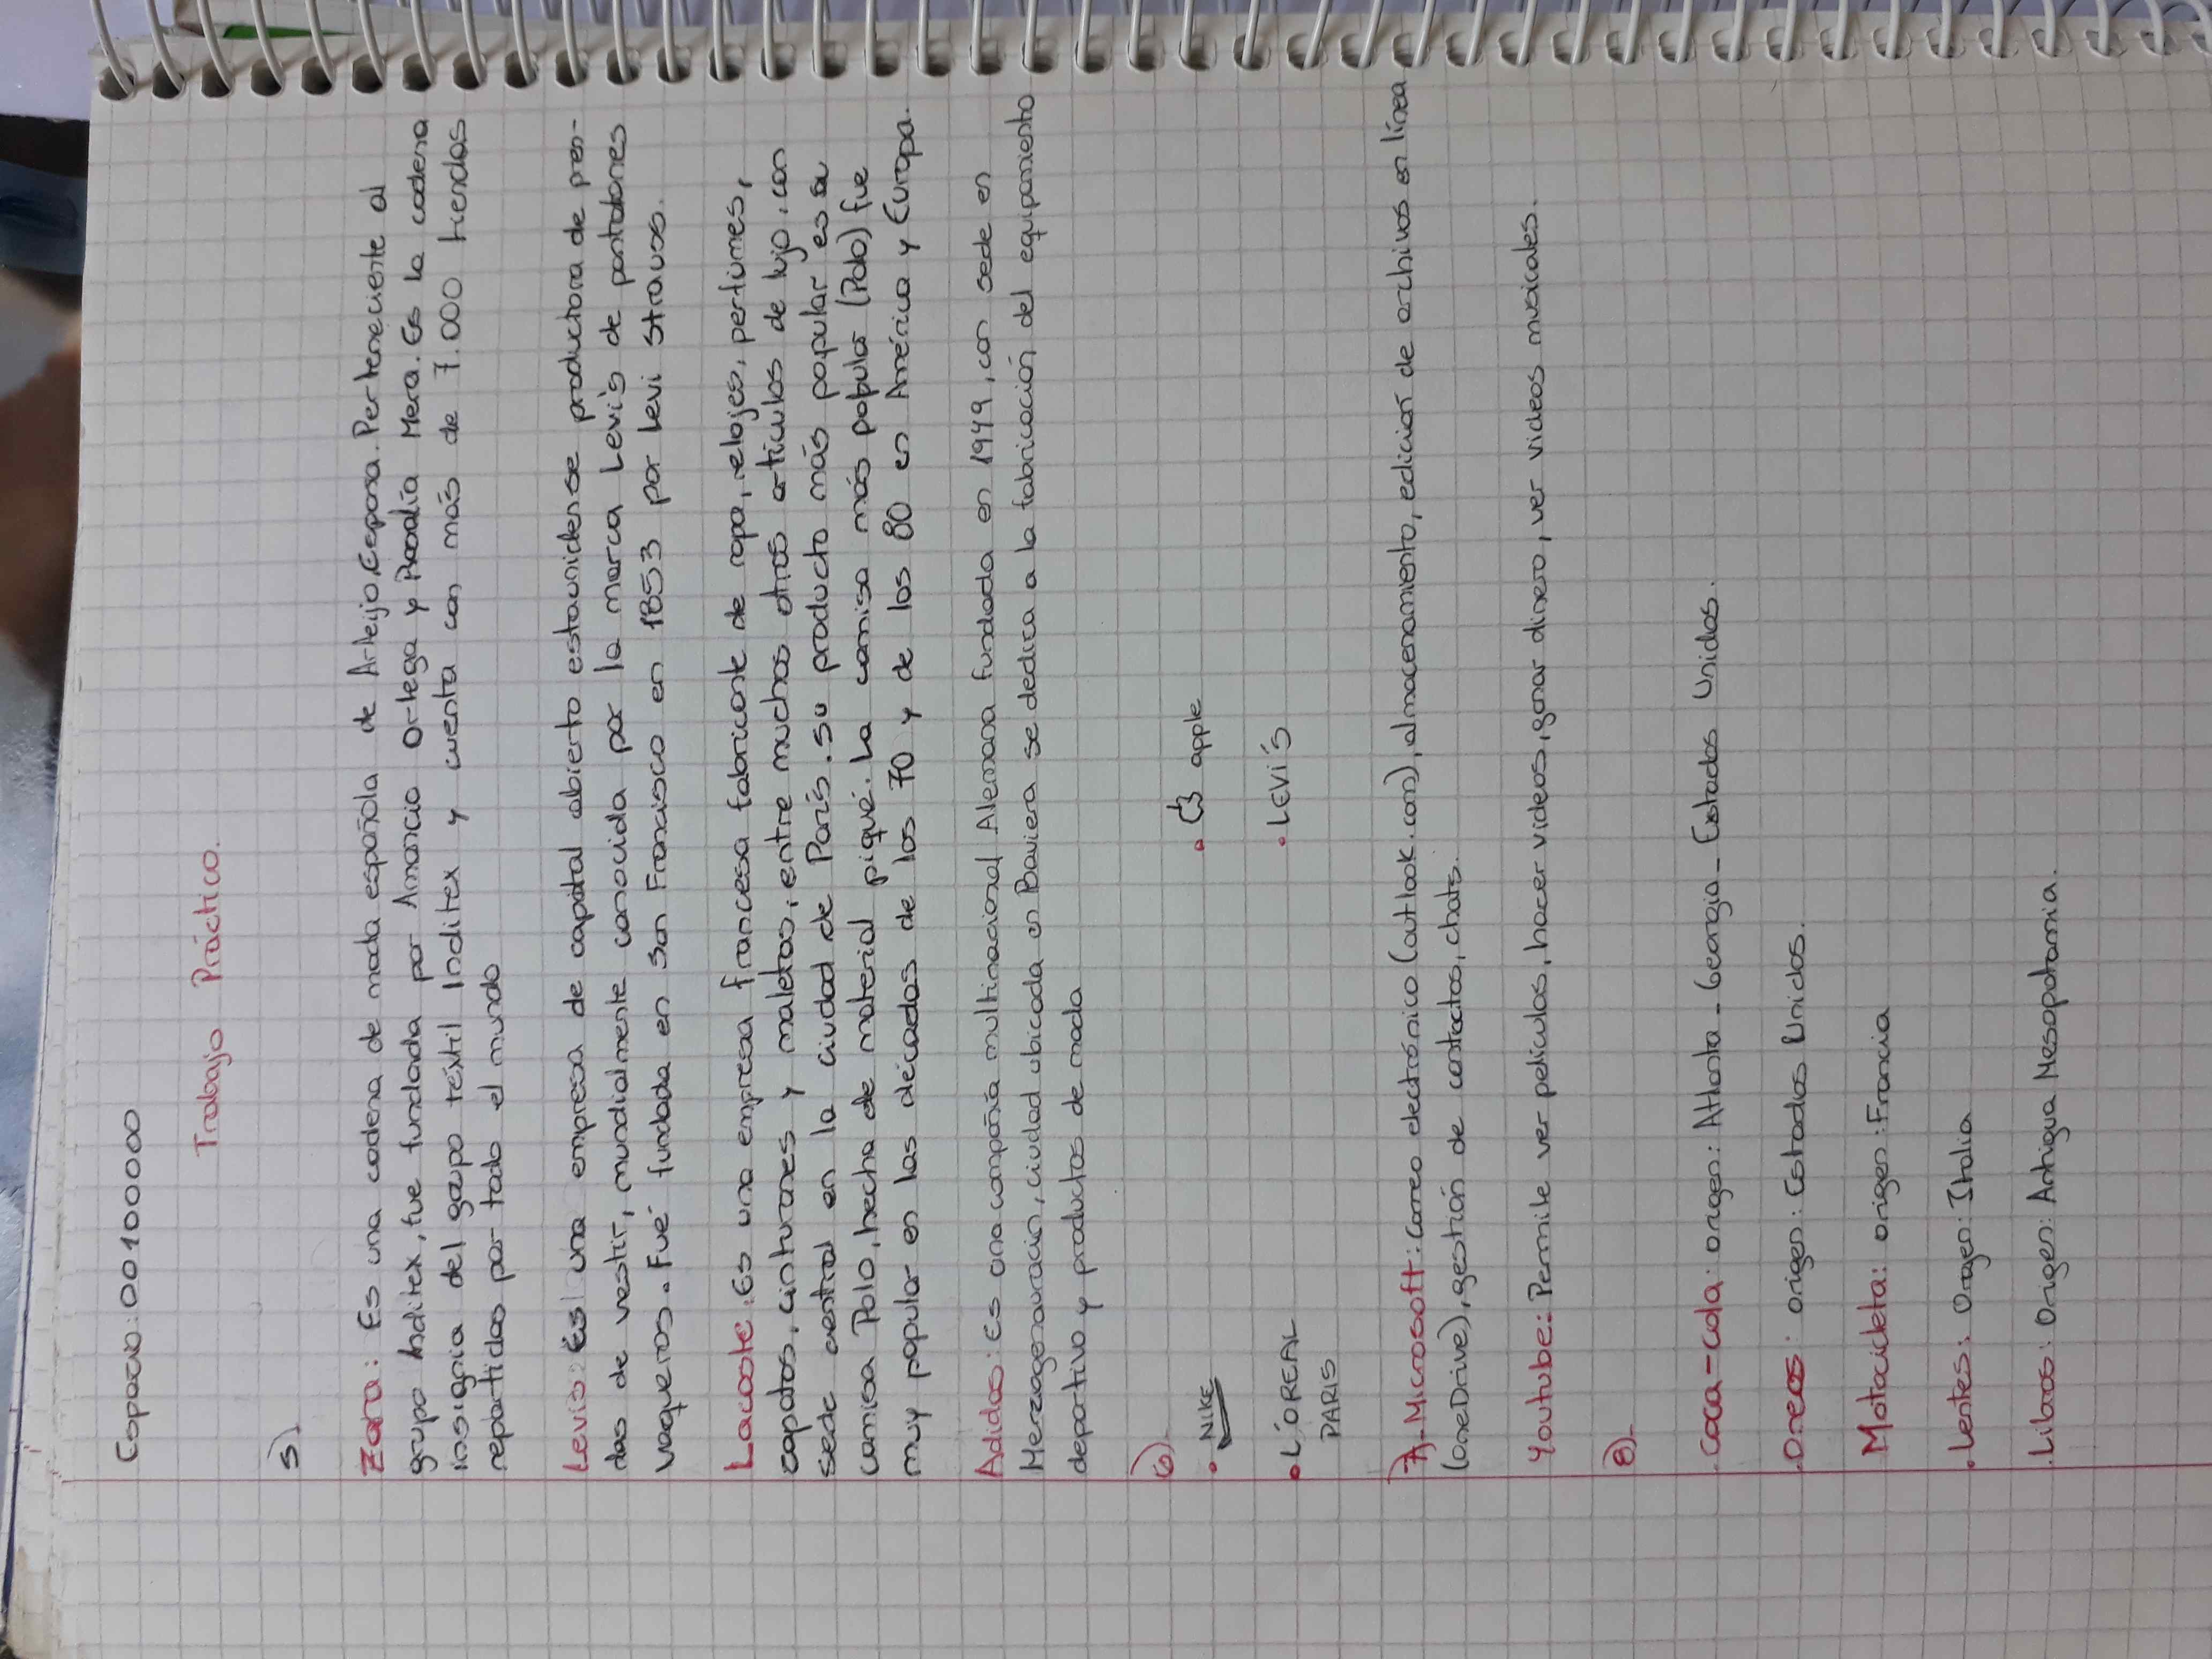 Espacio: 00100000
Trabajo Práctico.
5)
Zara: Es una cadena de moda española de Arteijo, España. Perteneciente al
grupo Inditex, fue fundada por Amancio Ortega y Rosalía Mera. Es la cadena
insignia del grupo téxtil Inditex y cuenta con más de 7.000 tiendas
repartidas por todo el mundo
Levis: Es una empresa de capital abierto estaunidense productora de pren-
das de vestir, mundialmente conocida por la marca Levi's de pantalones
vaqueros. Fué fundada en San Francisco en 1853 por Levi Strauss.
Lacoste: Es una empresa francesa fabricante de ropa, relojes, perfumes,
zapatos, cinturones y maletas, entre muchos otros artículos de lujo, con
sede central en la ciudad de París. Su producto más popular es su
camisa Polo, hecha de material piqué. La camisa más popular (Polo) fue
muy popular en las décadas de los 70 y de los 80 en América y Europa.
Adidas: Es una compañía multinacional Alemana fundada en 1949, con sede en
Herzogenauracin, ciudad ubicada en Baviera se dedica a la fabricación del equipamiento
deportivo y productos de moda
6)-
• NIKE
• apple
• L'OREAL
PARIS
• LEVI'S
7)- Microsoft: Correo electrónico (outlook.com), almacenamiento, edición de archivos en línea
(OneDrive), gestión de contactos, chats.
Youtube: Permite ver películas, hacer videos, ganar dinero, ver videos musicales.
8)-
. Coca-Cola: origen: Atlanta - Georgia - Estados Unidos.
. Oreos: origen: Estados Unidos.
Motocicleta: origen: Francia
. Lentes: Origen: Italia
. Libros: Origen: Antigua Mesopotamia.